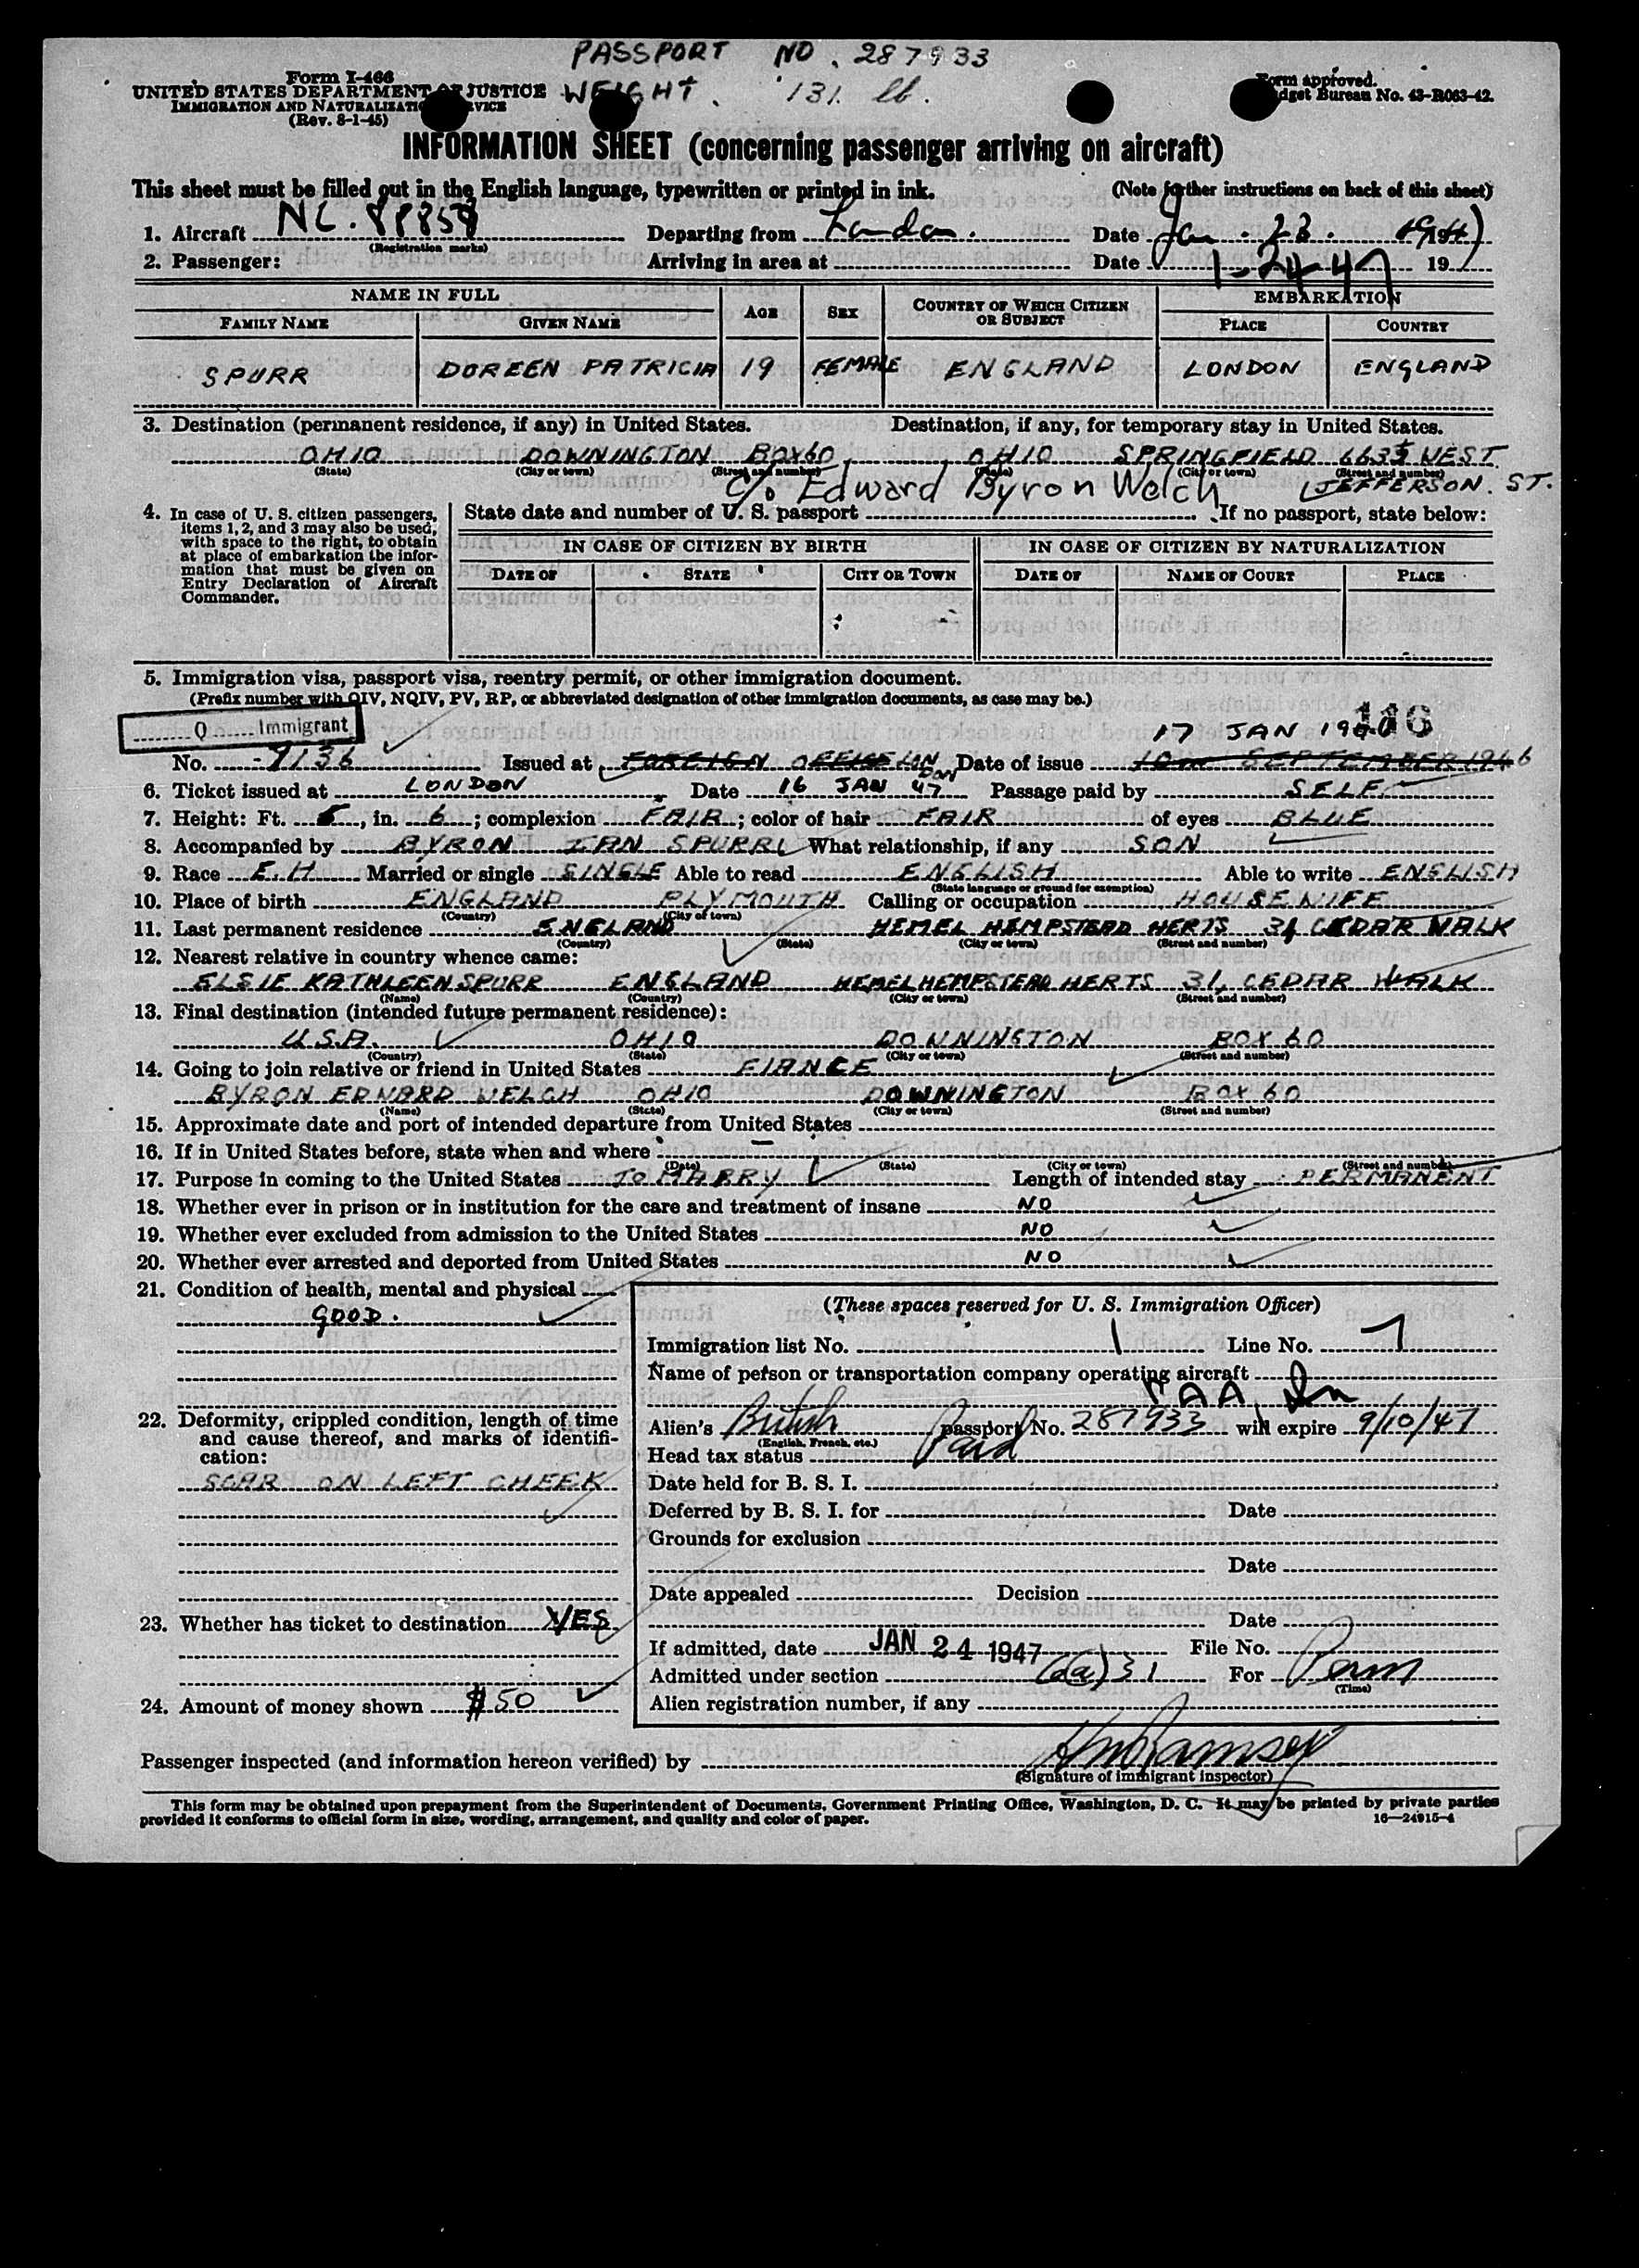 PASSPORT NO. 287933
WEIGHT. 131. lb.
Form I-466
UNITED STATES DEPARTMENT OF JUSTICE
IMMIGRATION AND NATURALIZATION SERVICE
(Rev. 8-1-45)
Form approved.
Budget Bureau No. 43-R063-42.
INFORMATION SHEET (concerning passenger arriving on aircraft)
This sheet must be filled out in the English language, typewritten or printed in ink. (Note further instructions on back of this sheet)
1. Aircraft NC. 88858 Departing from London. Date Jan. 23. 1947
(Registration marks)
2. Passenger: Arriving in area at Date 1-24-47 19
NAME IN FULL AGE SEX COUNTRY OF WHICH CITIZEN OR SUBJECT EMBARKATION
FAMILY NAME GIVEN NAME PLACE COUNTRY
SPURR DOREEN PATRICIA 19 FEMALE ENGLAND LONDON ENGLAND
3. Destination (permanent residence, if any) in United States. Destination, if any, for temporary stay in United States.
OHIO DOWNINGTON BOX 60 OHIO SPRINGFIELD 663 WEST
(State) (City or town) (Street and number) (State) (City or town) (Street and number)
C/o Edward Byron Welch JEFFERSON. ST.
4. In case of U. S. citizen passengers, items 1, 2, and 3 may also be used, with space to the right, to obtain at place of embarkation the information that must be given on Entry Declaration of Aircraft Commander.
State date and number of U. S. passport If no passport, state below:
IN CASE OF CITIZEN BY BIRTH IN CASE OF CITIZEN BY NATURALIZATION
DATE OF STATE CITY OR TOWN DATE OF NAME OF COURT PLACE
5. Immigration visa, passport visa, reentry permit, or other immigration document.
(Prefix number with QIV, NQIV, PV, RP, or abbreviated designation of other immigration documents, as case may be.)
Q Immigrant
116
17 JAN 19
No. 9136 Issued at FOREIGN OFFICE LONDON Date of issue SEPTEMBER 1946
6. Ticket issued at LONDON Date 16 JAN 47 Passage paid by SELF
7. Height: Ft. 5, in. 6; complexion FAIR; color of hair FAIR of eyes BLUE
8. Accompanied by BYRON IAN SPURR What relationship, if any SON
9. Race E.H Married or single SINGLE Able to read ENGLISH Able to write ENGLISH
(State language or ground for exemption)
10. Place of birth ENGLAND PLYMOUTH Calling or occupation HOUSEWIFE
(Country) (City of town)
11. Last permanent residence ENGLAND HEMEL HEMPSTEAD HERTS 31 CEDAR WALK
(Country) (State) (City or town) (Street and number)
12. Nearest relative in country whence came:
ELSIE KATHLEEN SPURR ENGLAND HEMEL HEMPSTEAD HERTS 31, CEDAR WALK
(Name) (Country) (City or town) (Street and number)
13. Final destination (intended future permanent residence):
U.S.A. OHIO DOWNINGTON BOX 60
(Country) (State) (City or town) (Street and number)
14. Going to join relative or friend in United States FIANCE
BYRON EDWARD WELCH OHIO DOWNINGTON BOX 60
(Name) (State) (City or town) (Street and number)
15. Approximate date and port of intended departure from United States
16. If in United States before, state when and where —
(Date) (State) (City or town) (Street and number)
17. Purpose in coming to the United States TO MARRY Length of intended stay PERMANENT
18. Whether ever in prison or in institution for the care and treatment of insane NO
19. Whether ever excluded from admission to the United States NO
20. Whether ever arrested and deported from United States NO
21. Condition of health, mental and physical
GOOD.
22. Deformity, crippled condition, length of time and cause thereof, and marks of identification:
SCAR ON LEFT CHEEK
23. Whether has ticket to destination YES
24. Amount of money shown $50
(These spaces reserved for U. S. Immigration Officer)
Immigration list No. 1 Line No. 7
Name of person or transportation company operating aircraft
PAA
Alien's British passport No. 287933 will expire 9/10/47
(English, French, etc.)
Head tax status Paid
Date held for B. S. I.
Deferred by B. S. I. for Date
Grounds for exclusion
Date
Date appealed Decision
Date
If admitted, date JAN 24 1947 File No.
Admitted under section 6(a)31 For Perm
(Time)
Alien registration number, if any
Passenger inspected (and information hereon verified) by
(Signature of immigrant inspector)
This form may be obtained upon prepayment from the Superintendent of Documents, Government Printing Office, Washington, D. C. It may be printed by private parties
provided it conforms to official form in size, wording, arrangement, and quality and color of paper. 16—24915-4